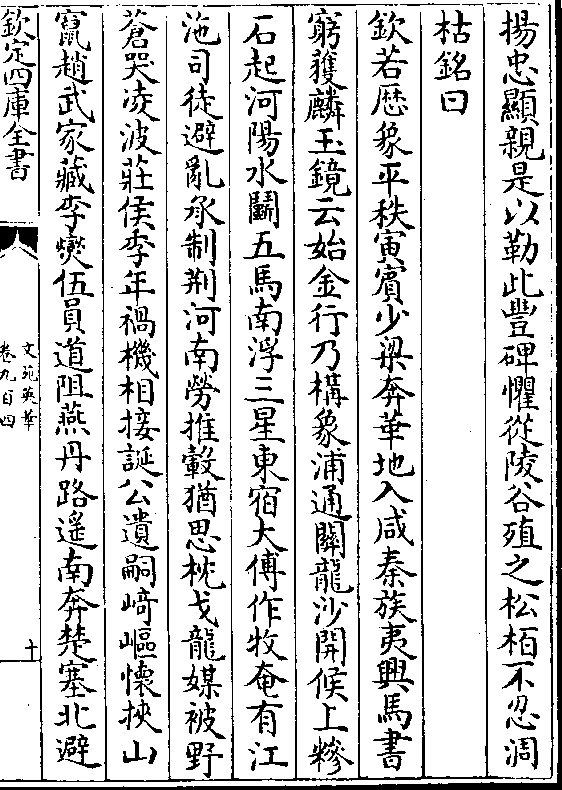 揚忠顯親是以勒此豐碑懼從陵谷殖之松栢不忍凋
枯銘曰
欽若厯象平秩寅賓少梁奔華地入咸秦族夷興馬書
窮獲麟玉鏡云始金行乃構象浦通關龍沙開候上糝
石起河陽水鬭五馬南浮三星東宿大傅作牧奄有江
沲司徒避亂承制荆河南勞推轂猶思枕戈龍媒被野
蒼哭凌波莊侯李年禍機相接誕公遺嗣﨑嶇懷挾山
竄趙武家藏李燮伍員道阻燕丹路遥南奔楚塞北避
欽定四庫全書
文苑英華
卷九百四
十